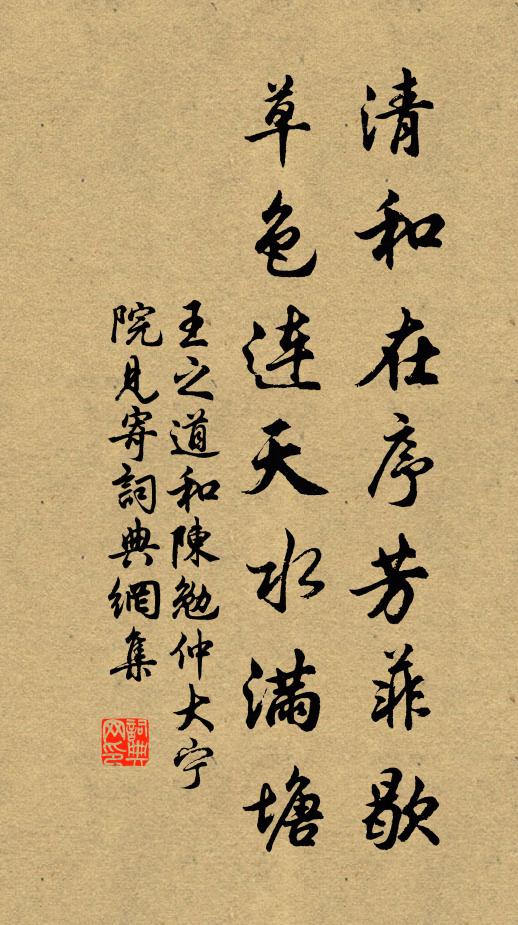 清和在序芳菲歇
草色连天水满塘
王之道和陳勉仲大宁
院見寄詞典網集
詞典网印